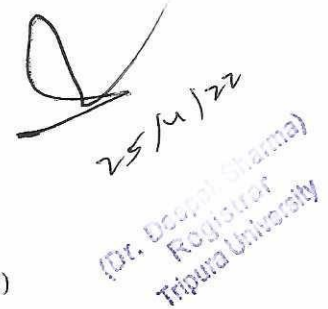 25/11/22
(Dr. Deepak Sharma)
Registrar
Tripura University
)